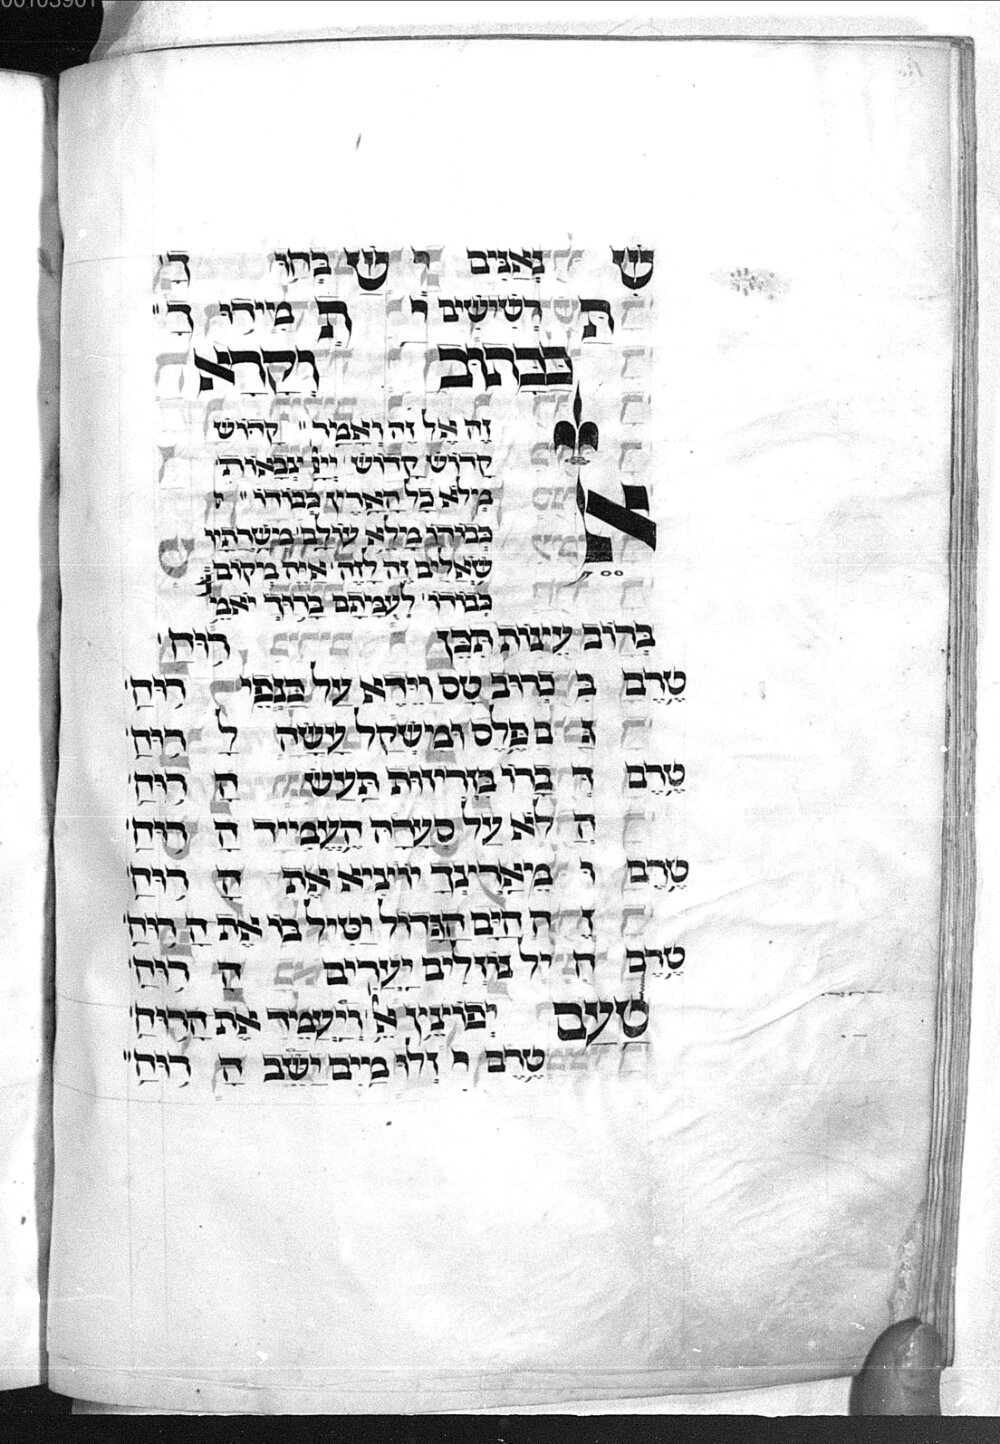 שַׁנְאַנִּים יְשַׁבְּחוּ דָ'
תַּרְשִׁישִׁים יְתַמִירוּ דָ"
כַּכָּתוּב וְקָרָא
זֶה אֶל זֶה וְאָמַר " קָדוֹשׁ
קָדוֹשׁ קָדוֹשׁ יְיָ צְבָאוֹת
מְלֹא כָל הָאָרֶץ כְּבוֹדוֹ "
כְּבוֹדוֹ מָלֵא עוֹלָם מְשָׁרְתָיו
שׁוֹאֲלִים זֶה לָזֶה אַיֵּה מְקוֹם
כְּבוֹדוֹ לְעֻמָּתָם בָּרוּךְ יֹאמֵ'
א
בְּרוֹב עֵיצוֹת תִּכֵּן רוּחַ'
טֶרֶם בְּ כְרוּב טָס וַיֵּדֶא עַל כַּנְפֵי רוּחַ'
גַּ ם פֶּלֶס וּמִשְׁקָל עָשָׂה לָ רוּחַ'
טֶרֶם דְּ בָרוֹ בִּזְרִיזוּת תַּעַשׂ הָ רוּחַ'
הֲ לֹא עַל סְעָרָה הֶעֱמִיד הָ רוּחַ'
טֶרֶם וּ מֵאַרְיֵנֵךְ יוֹצִיא אֶת הָ רוּחַ'
זֶ ה הַיָּם הַגָּדוֹל יַטִּיל בּוֹ אֶת הָ רוּחַ'
טֶרֶם הָ יָל נוֹזְלִים יַעֲרִים הָ רוּחַ'
טעם יְפוֹצֵץ אֶ' וְיַעֲמִיד אֶת הָרוּחַ'
טֶרֶם י זְלוּ מַיִם יַשֵּׁב הָ רוּחַ"